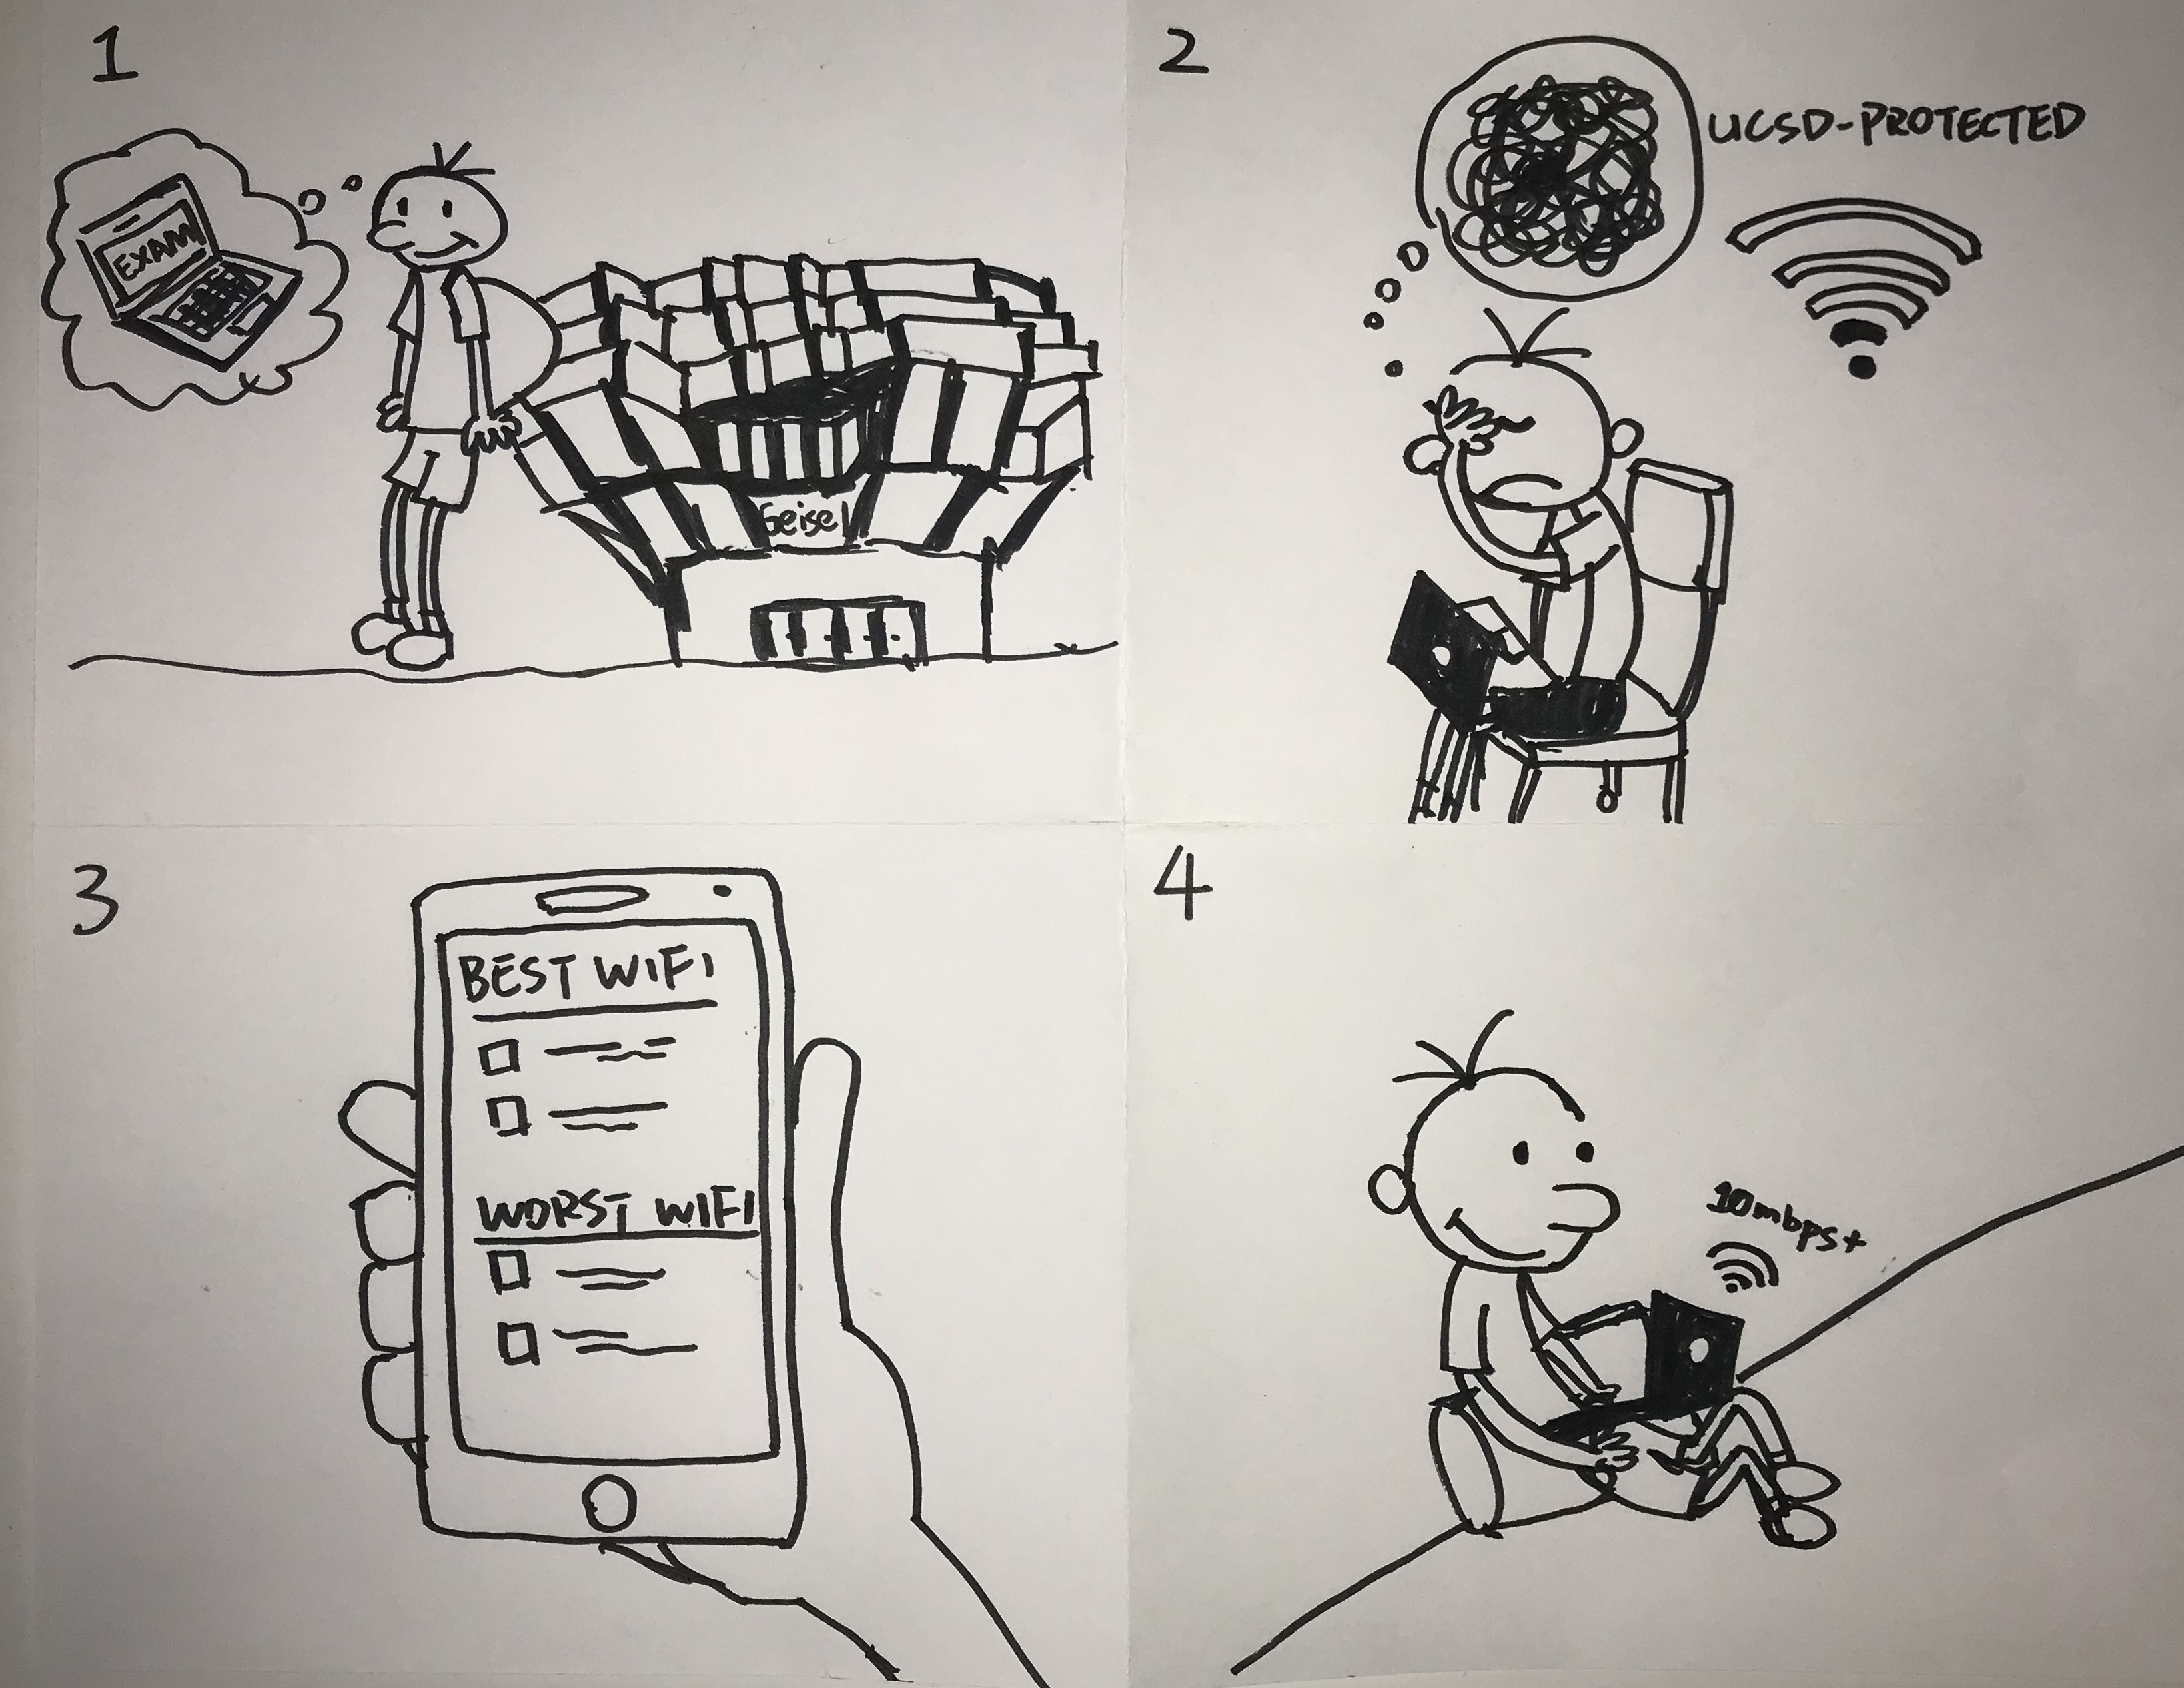 1
EXAM
Geisel
2
UCSD-PROTECTED
3
BEST WIFI
WORST WIFI
4
10mbps+